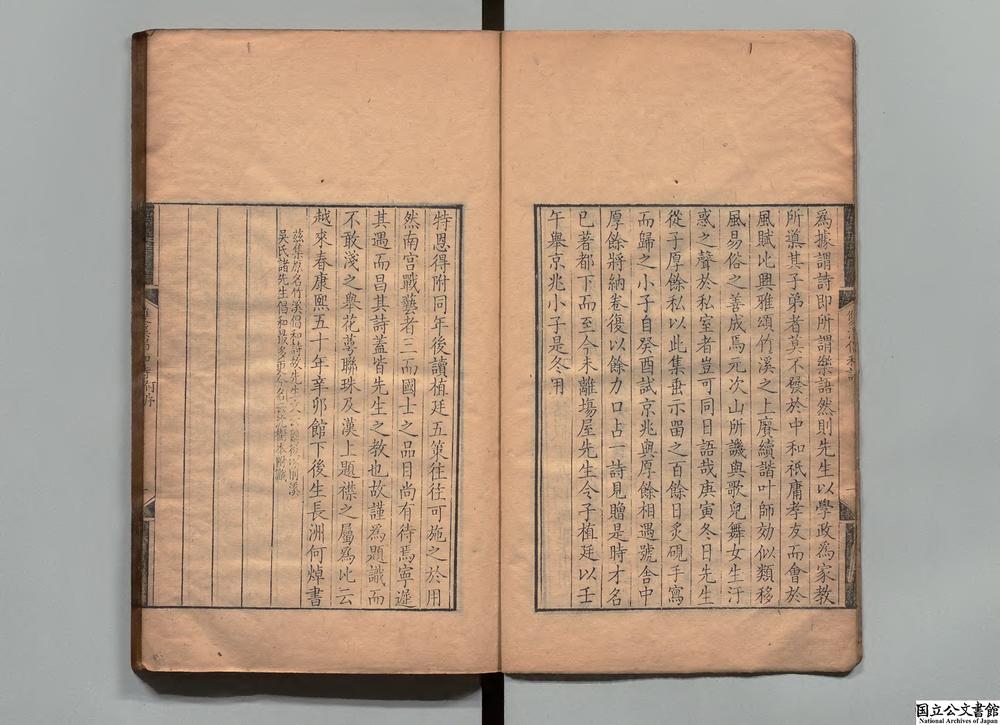 為據謂詩即所謂樂語然則先生以學政為家教
所蕆其子弟者莫不發於中和祇庸孝友而會於
風賦比興雅頌竹溪之上賡續諧叶師効似類移
風易俗之善成焉元次山所譏與歌兒舞女生汙
惑之聲於私室者豈可同日語哉庚寅冬日先生
從子厚餘私以此集垂示留之百餘日炙硯手寫
而歸之小子自癸酉試京兆與厚餘相遇號舍中
厚餘將納卷復以餘力口占一詩見贈是時才名
已著都下而至今未離場屋先生令子植廷以壬
午舉京兆小子是冬用
特恩得附同年後讀植廷五策往往可施之於用
然南宮戰藝者三而國士之品目尚有待焉寧遑
其遇而昌其詩蓋皆先生之教也故謹為題識而
不敢淺之舉花萼聯珠及漢上題襟之屬為比云
越來春康熙五十年辛卯館下後生長洲何焯書
茲集原名竹溪倡和詩故先生文
吳氏諸先生倡和最多更今名
国立公文書館
National Archives of Japan